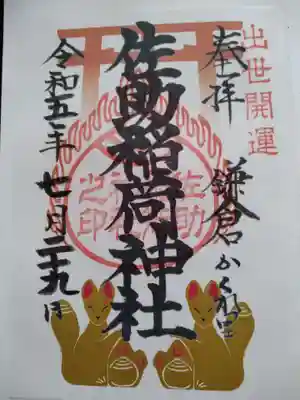 出世開運
奉拝
鎌倉かくれ里
佐助稲荷神社
佐助
之印
令和五年七月二十九日